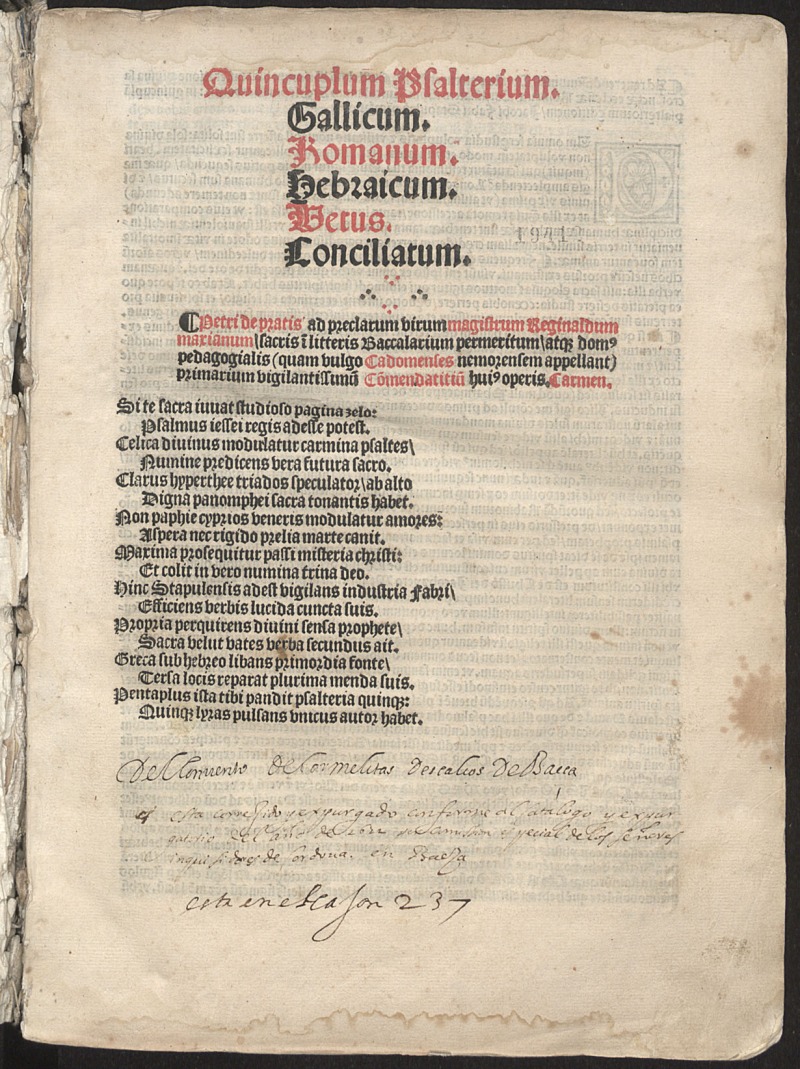 Quincuplum Psalterium.
Gallicum.
Romanum.
Hebraicum.
Vetus.
Conciliatum.
1941
Petri de pratis ad preclarum virum magistrum Reginaldum
marianum\sacris ī litteris Baccalarium permeritum\atqꝫ domꝰ
pedagogialis (quam vulgo Cadomenses nemorensem appellant)
primarium vigilantissimū Cōmendatitiū huiꝰ operis. Carmen.
Si te sacra iuuat studioso pagina zelo:
Psalmus iessei regis adesse potest.
Celica diuinus modulatur carmina psaltes\
Numine predicens vera futura sacro.
Clarus hyperthee triados speculator\ab alto
Digna panomphei sacra tonantis habet.
Non paphie cyprios veneris modulatur amores:
Aspera nec rigido prelia marte canit.
Maxima prosequitur passi misteria christi:
Et colit in vero numina trina deo.
Hinc Stapulensis adest vigilans industria Fabri\
Efficiens verbis lucida cuncta suis.
Propria perquirens diuini sensa prophete\
Sacra velut vates verba secundus ait.
Greca sub hebreo libans primordia fonte\
Tersa locis reparat plurima menda suis.
Pentaplus ista tibi pandit psalteria quinqꝫ:
Quinqꝫ lyras pulsans vnicus autor habet.
Del Conuento de Carmelitas Descalços De Baeça
esta corregido y expurgado conforme al catalogo y expur
gatorio del año de por comission especial de los señores
inquisidores de Cordoua. en Baeza
esta en el caxon 237